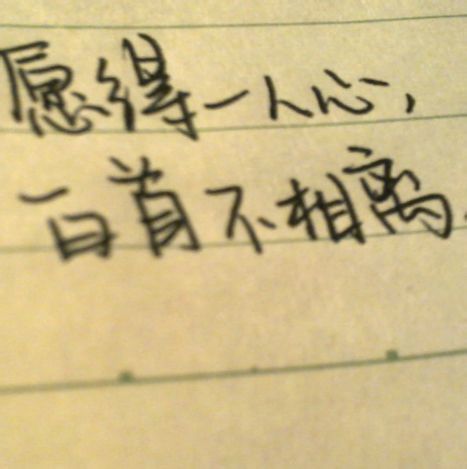 愿得一人心，
百首不相离.